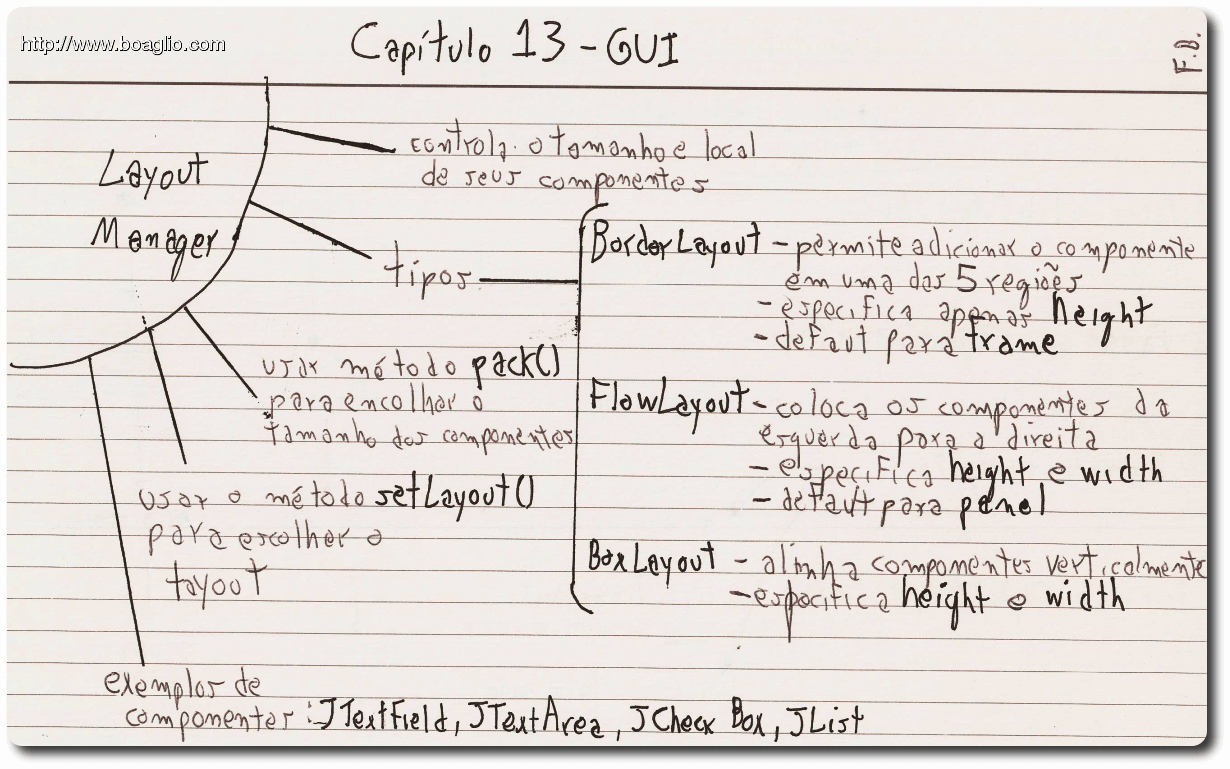 http://www.boaglio.com
Capítulo 13 - GUI
F.B.
Layout
Manager
controla o tamanho e local
de seus componentes
tipos
BorderLayout - permite adicionar o componente
em uma das 5 regiões
- especifica apenas height
- defaut para frame
FlowLayout - coloca os componentes da
esquerda para a direita
- especifica height e width
- defaut para panel
BoxLayout - alinha componentes verticalmente
- especifica height e width
usar método pack()
para encolher o
tamanho dos componentes
usar o método setLayout()
para escolher o
layout
exemplos de
componentes : JTextField, JTextArea, JCheck Box, JList